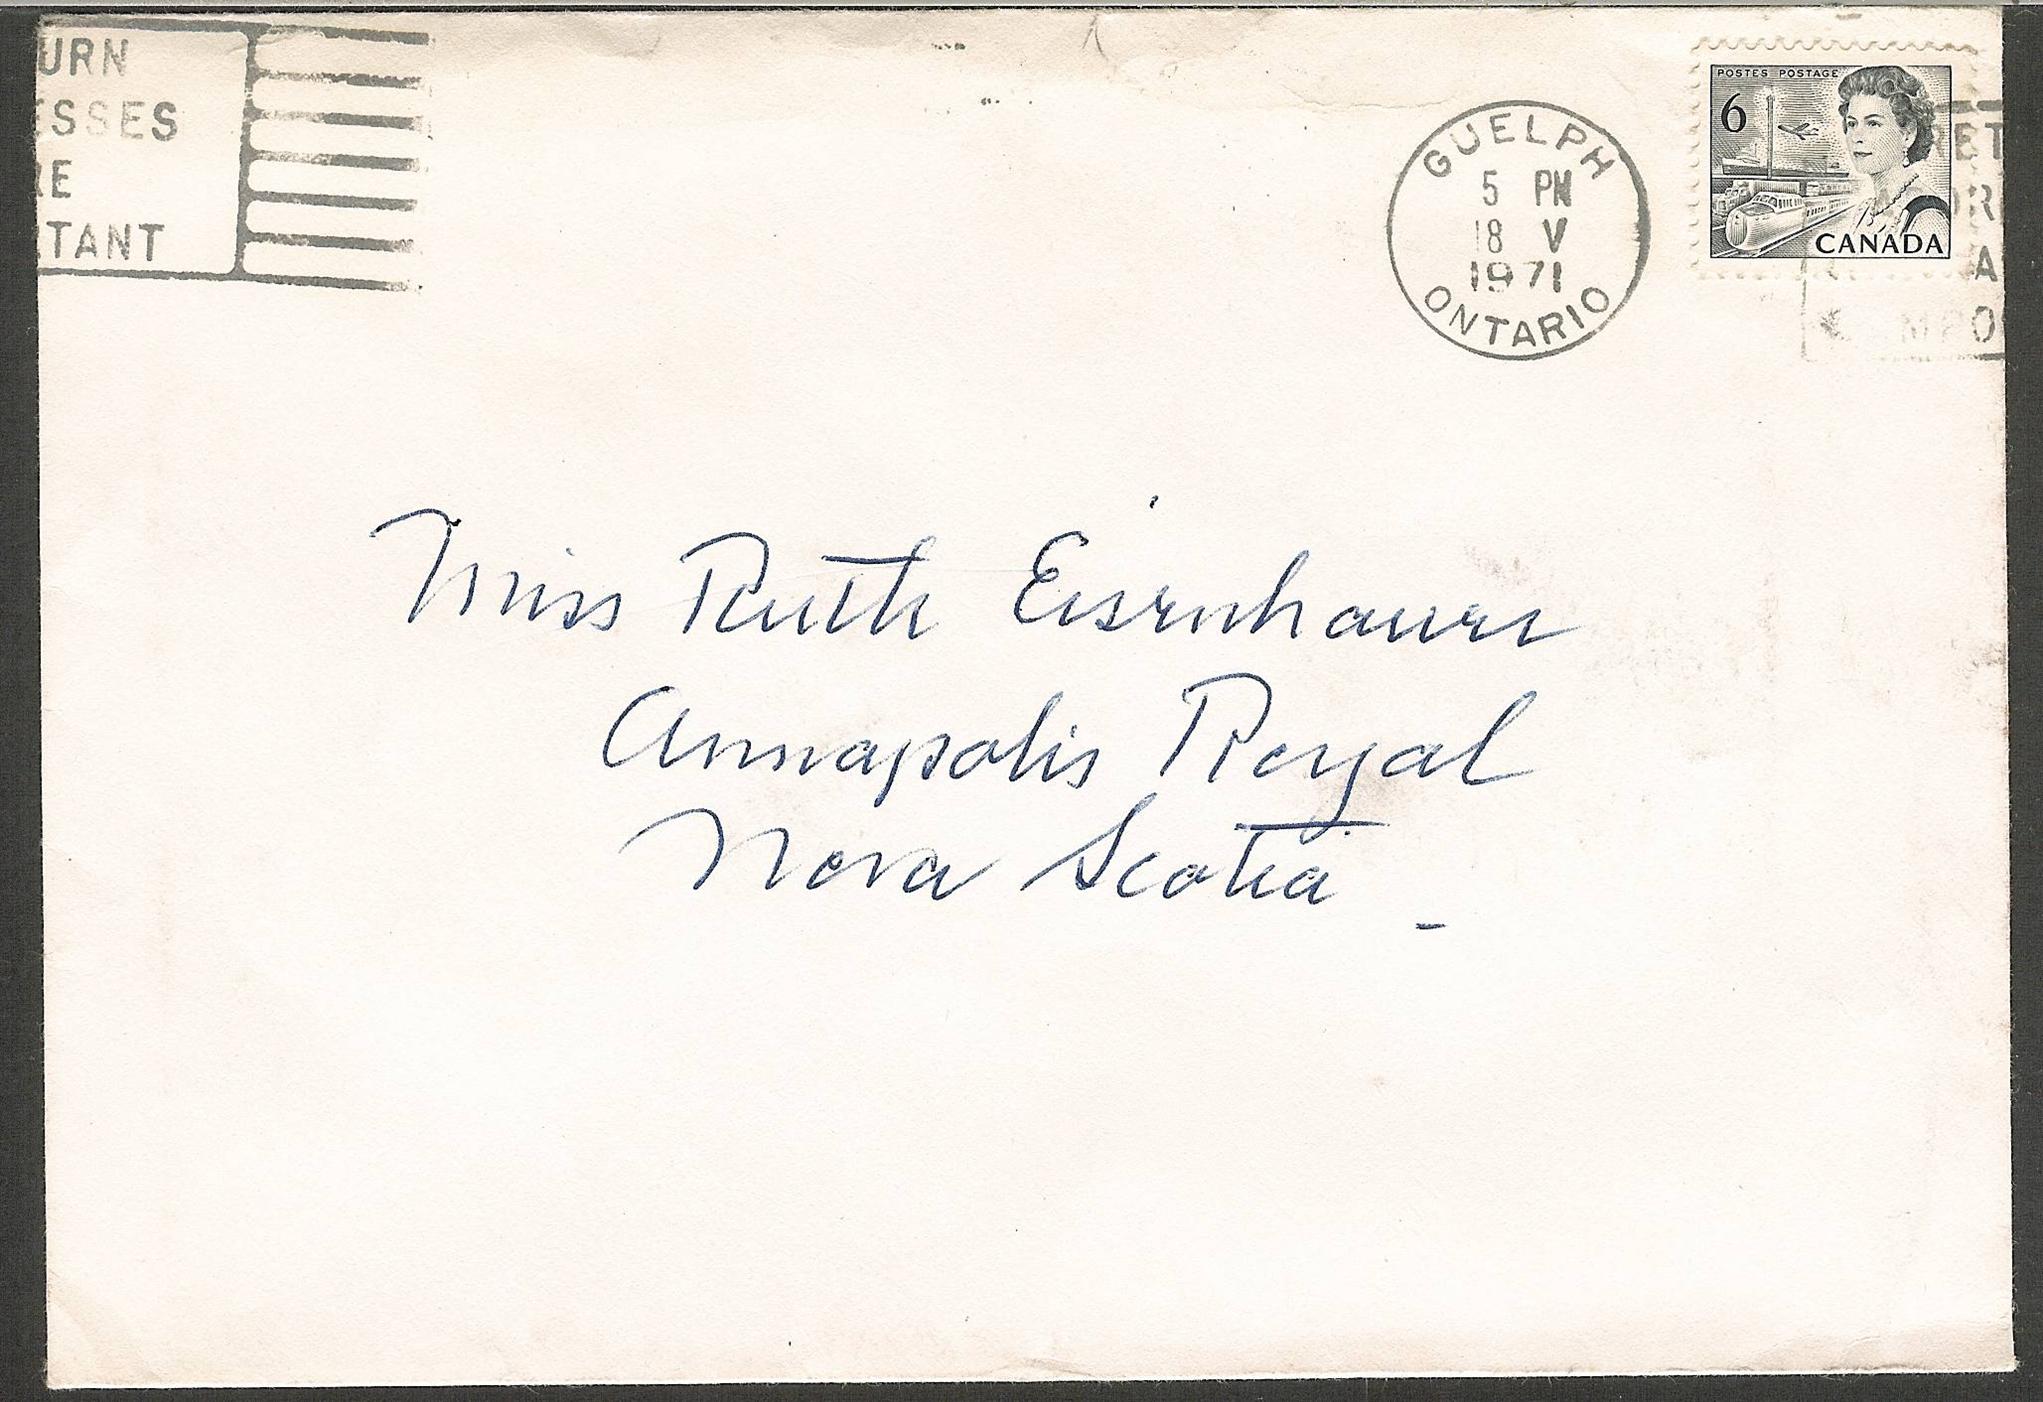 URN
ESSES
RE
TANT
GUELPH
5 PM
18 V
1971
ONTARIO
POSTES POSTAGE
6
CANADA
RET
OR
A
MPO
Miss Ruth Eisenhauer
Annapolis Royal
Nova Scotia